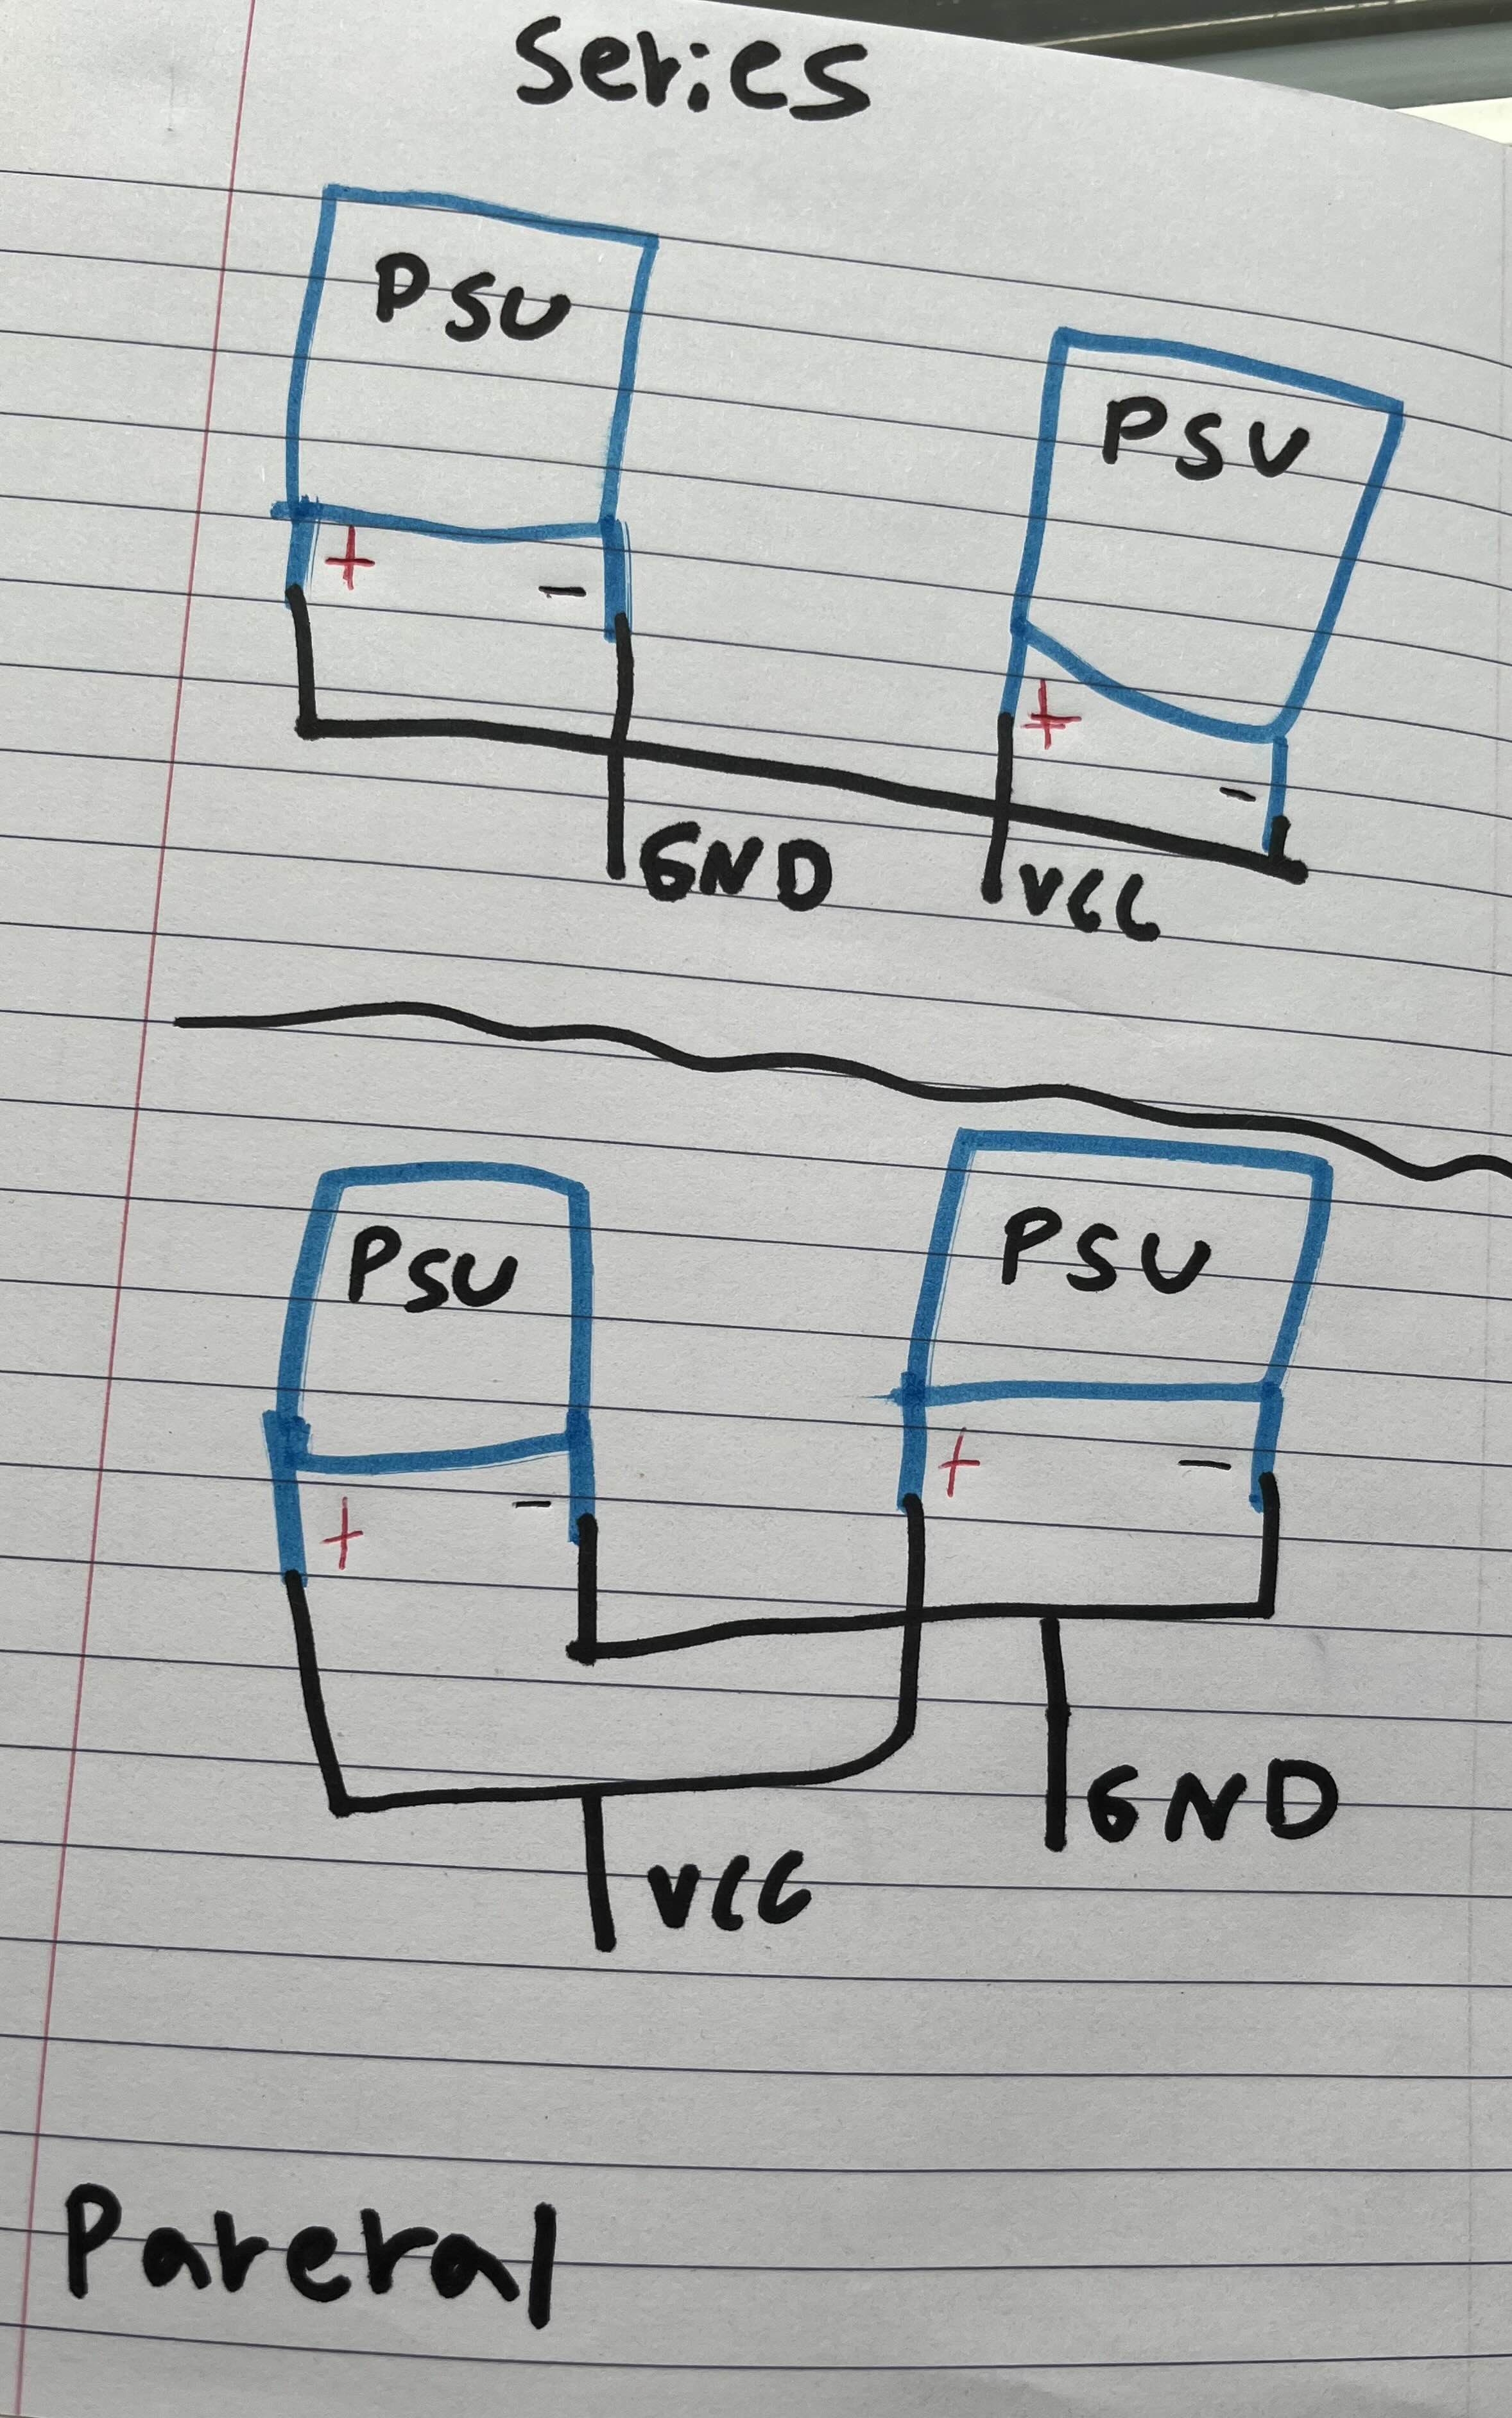 Series
PSU
PSU
+ -
+ -
GND
VCC
PSU
PSU
+ -
+ -
GND
VCC
Pareral